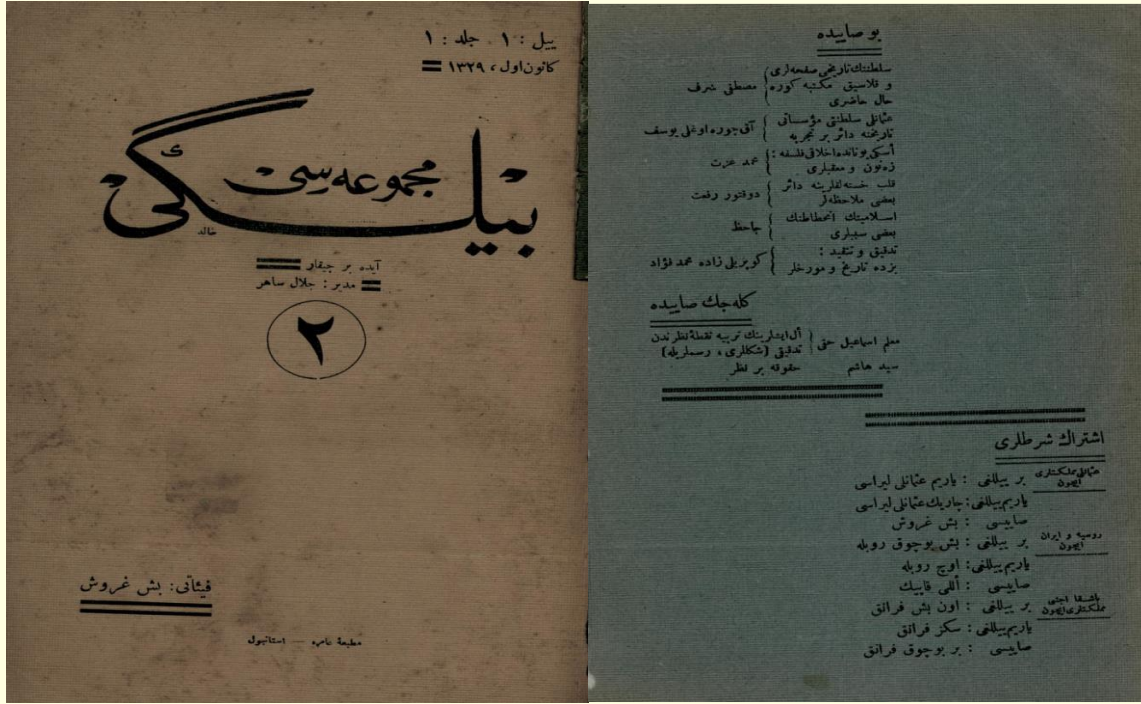 ییل : ١ جلد : ١
كانون اول ، ١٣٢٩
بیلگی
مجموعه سی
خالد
آیده بر چیقار
مدیر : جلال ساهر
٢
فیئاتی: بش غروش
مطبعهٔ عامره — استانبول
بو صاییده
سلطنتك تاریخی صفحه لری
و قلاسیق مكتبه كوره
حال حاضری
مصطفی شرف
عثمانلی سلطنتی مؤسساتی
تاریخنه دائر بر تجربه
آق چوره اوغلی یوسف
أسكی یونانده اخلاقی فلسفه :
زه نون و معقبلری
محمد عزت
قلب خسته لقلرینه دائر
بعضی ملاحظه لر
دوقتور رفعت
اسلامیتك انحطاطنك
بعضی سببلری
جاحظ
تدقیق و تنقید :
بزده تاریخ و مورخلر
كوپریلی زاده محمد فؤاد
كله جك صاییده
أل ایشلرینك تربیه نقطهٔ نظرندن
تدقیقی (شكللری ، رسملریله)
معلم اسماعیل حقی
حقوقه بر نظر
سید هاشم
اشتراك شرطلری
عثمانلی مملكتلری
ایچون
بر ییللغی : یاریم عثمانلی لیراسی
یاریم ییللغی : چاریك عثمانلی لیراسی
صاییسی : بش غروش
روسیه و ایران
ایچون
بر ییللغی : بش بوچوق روبله
یاریم ییللغی : اوچ روبله
صاییسی : أللی قاپیك
باشقا اجنبی
مملكتلری ایچون
بر ییللغی : اون بش فرانق
یاریم ییللغی : سكز فرانق
صاییسی : بر بوچوق فرانق